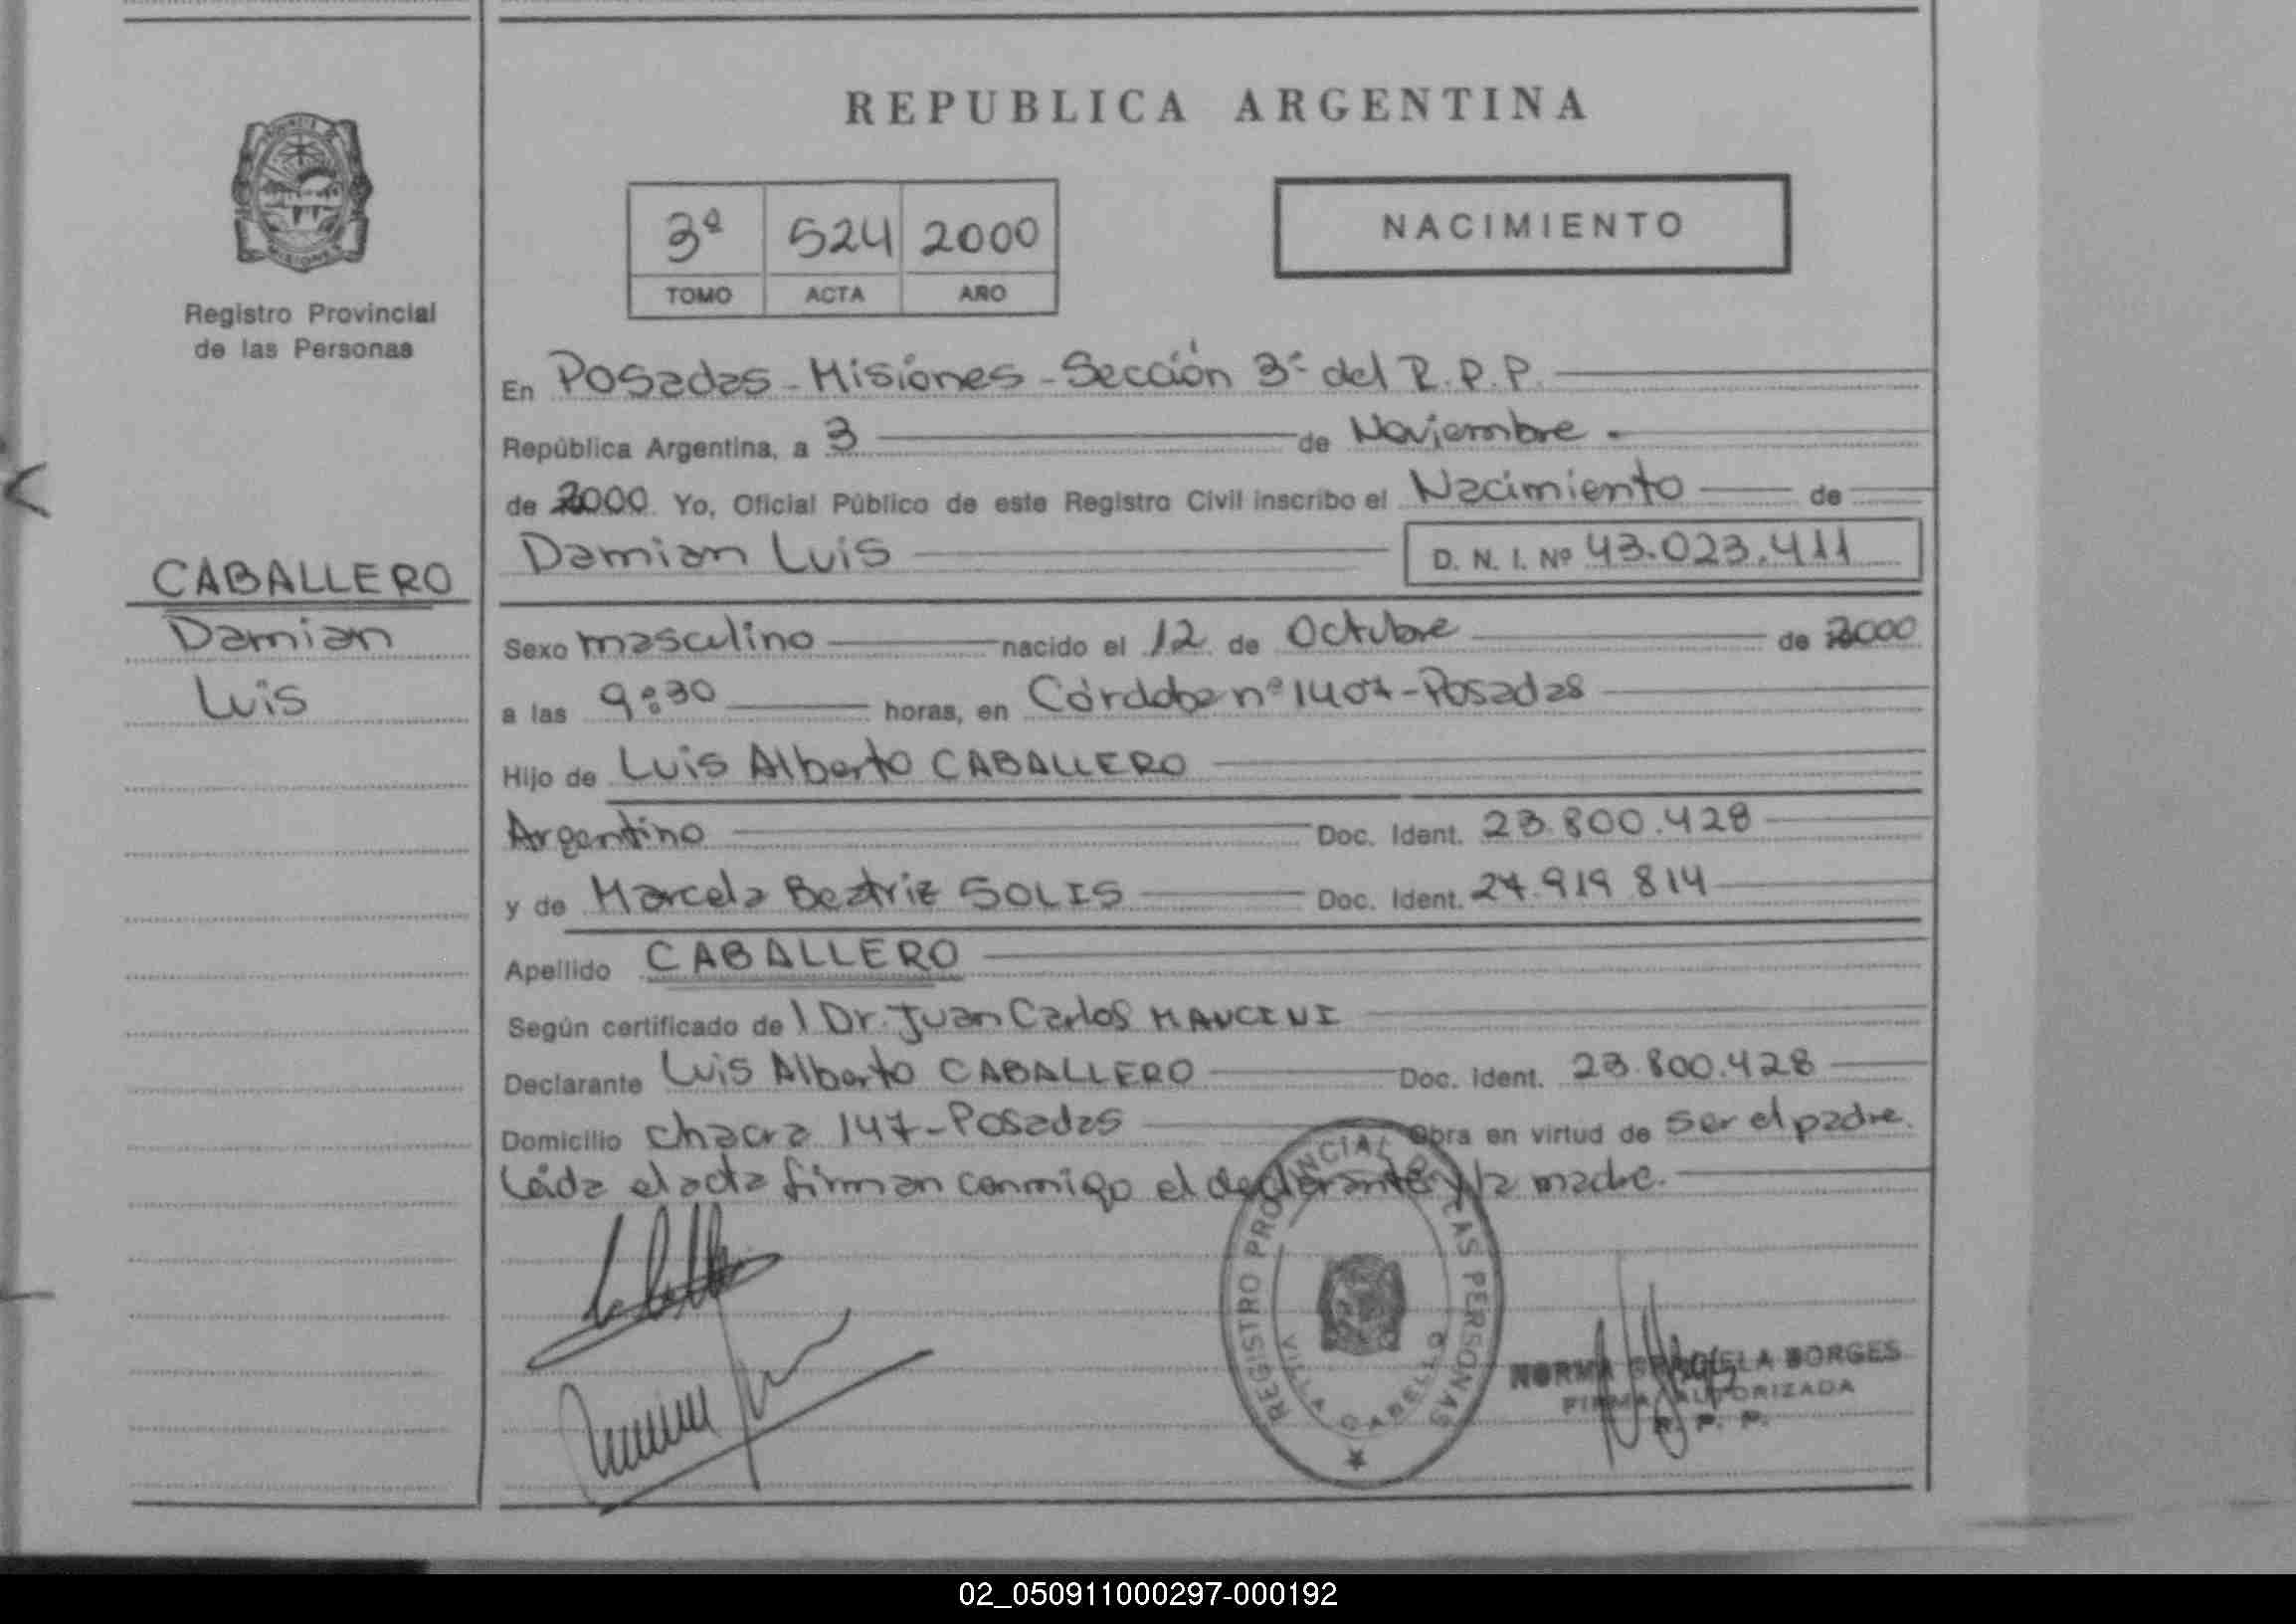 REPUBLICA ARGENTINA
3ª 524 2000
TOMO ACTA AÑO
NACIMIENTO
Registro Provincial
de las Personas
CABALLERO
Damian
Luis
En Posadas - Misiones - Sección 3ª del R.P.P.
República Argentina, a 3 de Noviembre.
de 2000 Yo, Oficial Público de este Registro Civil inscribo el Nacimiento de
Damian Luis D. N. I. Nº 43.023.411
Sexo masculino nacido el 12 de Octubre de 2000
a las 9:30 horas, en Córdoba nº 1407 - Posadas
Hijo de Luis Alberto CABALLERO
Argentino Doc. Ident. 23.800.428
y de Marcela Beatriz SOLIS Doc. Ident. 27.919.814
Apellido CABALLERO
Según certificado del Dr. Juan Carlos MANCINI
Declarante Luis Alberto CABALLERO Doc. Ident. 23.800.428
Domicilio chacra 147 - Posadas Obra en virtud de ser el padre.
Leída el acta firman conmigo el declarante y la madre.
REGISTRO PROVINCIAL DE LAS PERSONAS
VILLA CABELLO
NORMA GRACIELA BORGES
FIRMA AUTORIZADA
R. P. P.
02_050911000297-000192